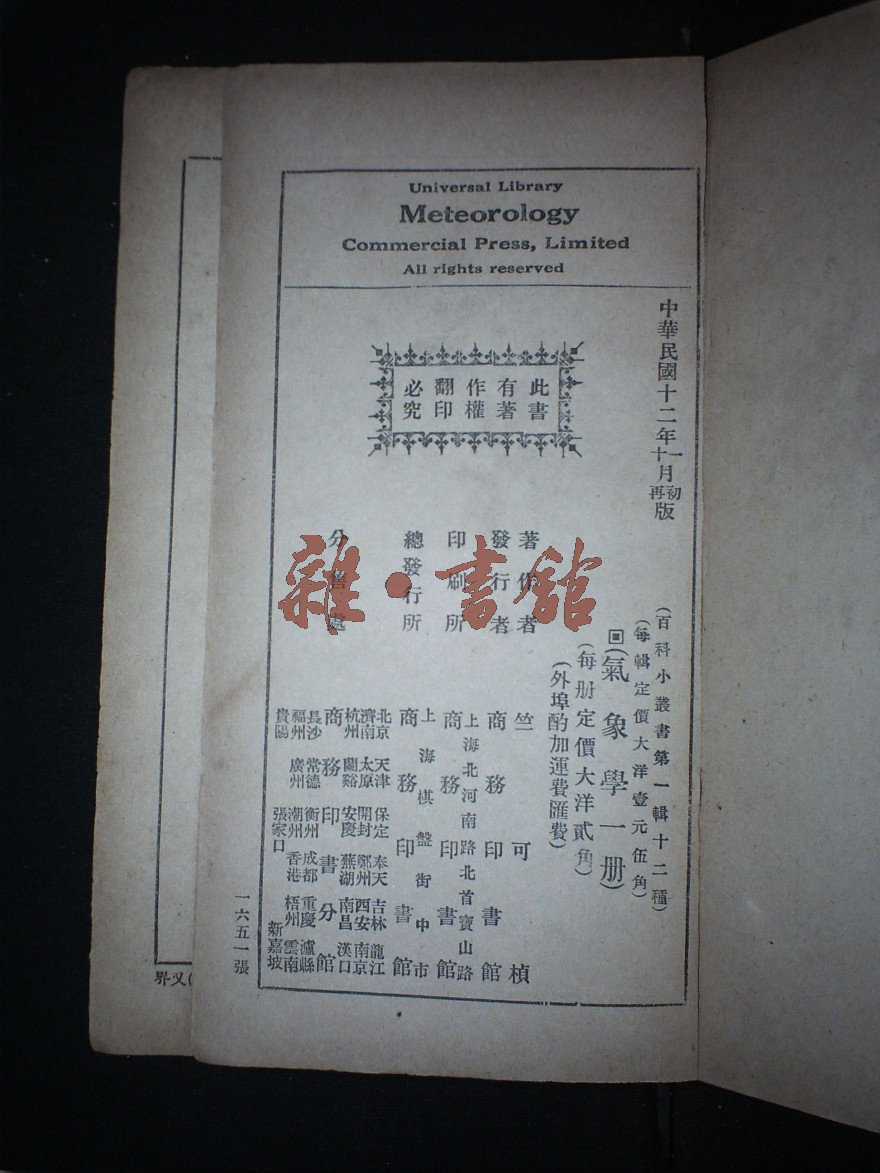 Universal Library
Meteorology
Commercial Press, Limited
All rights reserved
中華民國十二年十一月初再版
此書
有著
作權
翻印
必究
(百科小叢書第一輯十二種)
(每輯定價大洋壹元伍角)
回(氣象學一册)
(每册定價大洋貳角)
(外埠酌加運費匯費)
著作者 竺可楨
發行者 商務印書館
印刷所 上海北河南路北首寶山路 商務印書館
總發行所 上海棋盤街中市 商務印書館
分售處 商務印書分館
北京 天津 保定 奉天 吉林 龍江
濟南 太原 開封 鄭州 西安 南京
杭州 蘭谿 安慶 蕪湖 南昌 漢口
長沙 常德 衡州 成都 重慶 瀘縣
福州 廣州 潮州 香港 梧州 雲南
貴陽 張家口 新嘉坡
一六五一張
雜·書館